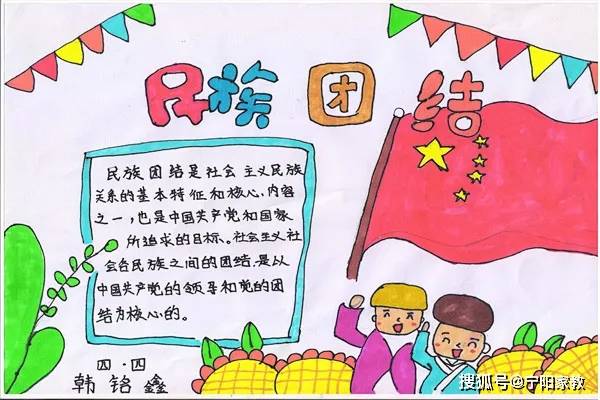 民族团结
民族团结是社会主义民族
关系的基本特征和核心、内容
之一，也是中国共产党和国家
所追求的目标。社会主义社
会各民族之间的团结、是以
中国共产党的领导和党的团
结为核心的。
四·四
韩铭鑫
搜狐号@宁阳家教